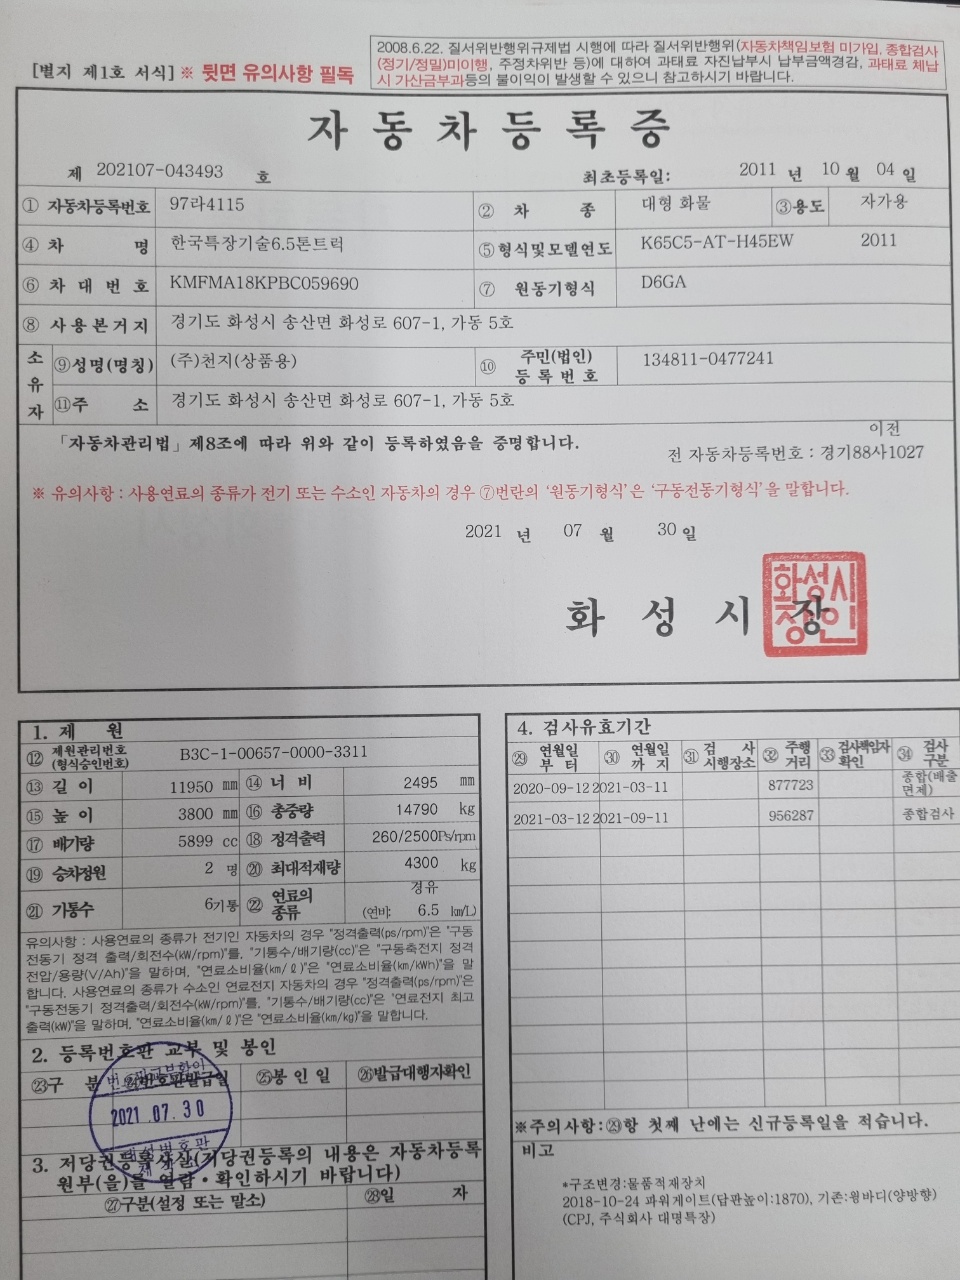 [별지 제1호 서식] ※ 뒷면 유의사항 필독
2008.6.22. 질서위반행위규제법 시행에 따라 질서위반행위(자동차책임보험 미가입, 종합검사
(정기/정밀)미이행, 주정차위반 등)에 대하여 과태료 자진납부시 납부금액경감, 과태료 체납
시 가산금부과등의 불이익이 발생할 수 있으니 참고하시기 바랍니다.
자동차등록증
제 202107-043493 호 최초등록일: 2011 년 10 월 04 일
① 자동차등록번호 97라4115 ② 차 종 대형 화물 ③용도 자가용
④ 차 명 한국특장기술6.5톤트럭 ⑤형식및모델연도 K65C5-AT-H45EW 2011
⑥ 차대번호 KMFMA18KPBC059690 ⑦ 원동기형식 D6GA
⑧ 사용본거지 경기도 화성시 송산면 화성로 607-1, 가동 5호
소유자 ⑨성명(명칭) (주)천지(상품용) ⑩ 주민(법인)등록번호 134811-0477241
⑪주 소 경기도 화성시 송산면 화성로 607-1, 가동 5호
「자동차관리법」제8조에 따라 위와 같이 등록하였음을 증명합니다.
이전
전 자동차등록번호 : 경기88사1027
※ 유의사항 : 사용연료의 종류가 전기 또는 수소인 자동차의 경우 ⑦번란의 '원동기형식'은 '구동전동기형식'을 말합니다.
2021 년 07 월 30 일
화성시장
화성시장인
1. 제 원
⑫ 제원관리번호(형식승인번호) B3C-1-00657-0000-3311
⑬ 길이 11950 mm ⑭ 너비 2495 mm
⑮ 높이 3800 mm ⑯ 총중량 14790 kg
⑰ 배기량 5899 cc ⑱ 정격출력 260/2500Ps/rpm
⑲ 승차정원 2 명 ⑳ 최대적재량 4300 kg
㉑ 기통수 6기통 ㉒ 연료의 종류 경유 (연비: 6.5 km/L)
유의사항 : 사용연료의 종류가 전기인 자동차의 경우 "정격출력(ps/rpm)"은 "구동
전동기 정격 출력/회전수(kW/rpm)"를, "기통수/배기량(cc)"은 "구동축전지 정격
전압/용량(V/Ah)"을 말하며, "연료소비율(km/ℓ)"은 "연료소비율(km/kWh)"을 말
합니다. 사용연료의 종류가 수소인 연료전지 자동차의 경우 "정격출력(ps/rpm)"은
"구동전동기 정격출력/회전수(kW/rpm)"를, "기통수/배기량(cc)"은 "연료전지 최고
출력(kW)"을 말하며, "연료소비율(km/ℓ)"은 "연료소비율(km/kg)"을 말합니다.
2. 등록번호판 교부 및 봉인
㉓구 분 ㉔번호판발급일 ㉕봉인일 ㉖발급대행자확인
2021.07.30
3. 저당권등록사실(저당권등록의 내용은 자동차등록
원부(을)를 열람·확인하시기 바랍니다)
㉗구분(설정 또는 말소) ㉘일 자
4. 검사유효기간
㉙ 연월일부터 ㉚ 연월일까지 ㉛ 검사시행장소 ㉜ 주행거리 ㉝ 검사책임자확인 ㉞ 검사구분
2020-09-12 2021-03-11 877723 종합(배출면제)
2021-03-12 2021-09-11 956287 종합검사
※주의사항:㉙항 첫째 난에는 신규등록일을 적습니다.
비고
*구조변경:물품적재장치
2018-10-24 파워게이트(답판높이:1870), 기존:윙바디(양방향)
(CPJ, 주식회사 대명특장)